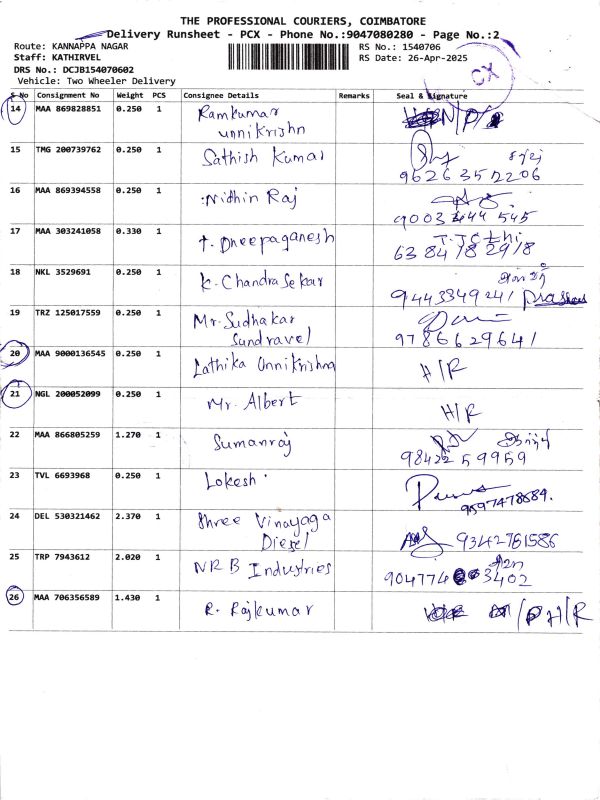 THE PROFESSIONAL COURIERS, COIMBATORE
Delivery Runsheet - PCX - Phone No.:9047080280 - Page No.:2
Route: KANNAPPA NAGAR RS No.: 1540706
Staff: KATHIRVEL RS Date: 26-Apr-2025
DRS No.: DCJB154070602
Vehicle: Two Wheeler Delivery
CX
S No Consignment No Weight PCS Consignee Details Remarks Seal & Signature
14 MAA 869828851 0.250 1 Ramkumar
unnikrishn
15 TMG 200739762 0.250 1 Sathish Kumar
9626352206
16 MAA 869394558 0.250 1 Nidhin Raj
9003444545
17 MAA 303241058 0.330 1 T. Dheepaganesh
6384782918
18 NKL 3529691 0.250 1 K. Chandrasekar
9443349241
19 TRZ 125017559 0.250 1 Mr. Sudhakar
Sundravel 9786629641
20 MAA 9000136545 0.250 1 Lathika Unnikrishna H/R
21 NGL 200052099 0.250 1 Mr. Albert H/R
22 MAA 866805259 1.270 1 Sumanraj
9842259959
23 TVL 6693968 0.250 1 Lokesh
9597478684.
24 DEL 530321462 2.370 1 Shree Vinayaga
Diesel 9342761586
25 TRP 7943612 2.020 1 NRB Industries
26 MAA 706356589 1.430 1 R. Rajkumar H/R